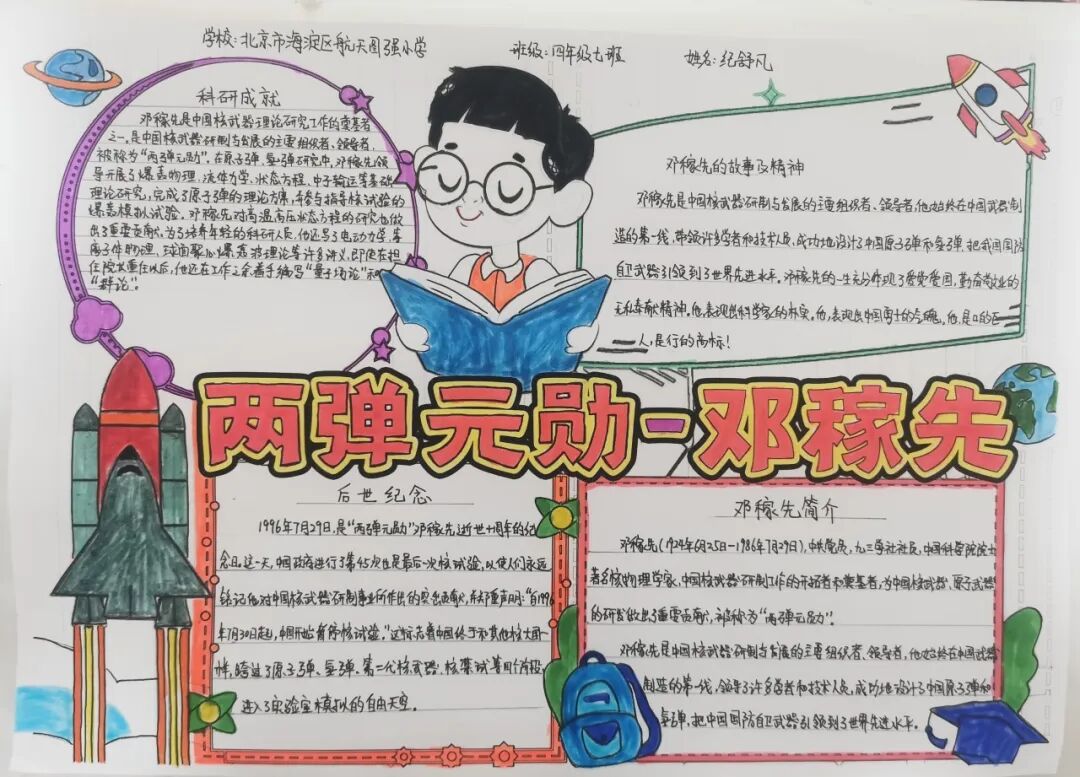 学校:北京市海淀区航天图强小学 班级:四年级七班 姓名:纪舒凡
科研成就
邓稼先是中国核武器理论研究工作的奠基者
之一。是中国核武器研制与发展的主要组织者、领导者,
被称为“两弹元勋”。在原子弹、氢弹研究中,邓稼先领
导开展了爆轰物理、流体力学、状态方程、中子输运等基础
理论研究,完成了原子弹的理论方案,并参与指导核试验的
爆轰模拟试验。邓稼先对高温高压状态方程的研究也做
出了重要贡献。为了培养年轻的科研人员,他还写了电动力学、等
离子体物理、球面聚心爆轰波理论等许多讲义,即使在担
任院长重任以后,他还在工作之余着手编写“量子场论”和
“群论”。
邓稼先的故事及精神
邓稼先是中国核武器研制与发展的主要组织者、领导者,他始终在中国武器制
造的第一线,带领许多学者和技术人员,成功地设计了中国原子弹和氢弹,把我国国防
自卫武器引领到了世界先进水平。邓稼先的一生充分体现了爱党爱国,勤奋敬业的
无私奉献精神。他,表现出科学家的朴实。他,表现出中国勇士的气魄。他,是口的巨
人,是行的高标!
两弹元勋-邓稼先
后世纪念
1996年7月29日,是“两弹元勋”邓稼先逝世十周年的纪
念日。这一天,中国政府进行了第45次也是最后一次核试验,以使人们永远
铭记他对中国核武器研制事业所作出的突出贡献,并郑重声明:“自1996
年7月30日起,中国开始暂停核试验。”这标志着中国终于和其他核大国一
样,跨过了原子弹、氢弹、第二代核武器、核禁试等四个阶段,
进入了实验室模拟的自由天空。
邓稼先简介
邓稼先(1924年6月25日-1986年7月29日),中共党员,九三学社社员,中国科学院院士
著名核物理学家,中国核武器研制工作的开拓者和奠基者,为中国核武器、原子武器
的研发做出了重要贡献,被称为“两弹元勋”。
邓稼先是中国核武器研制与发展的主要组织者、领导者,他始终在中国武器
制造的第一线,领导了许多学者和技术人员,成功地设计了中国原子弹和
氢弹,把中国国防自卫武器引领到了世界先进水平。